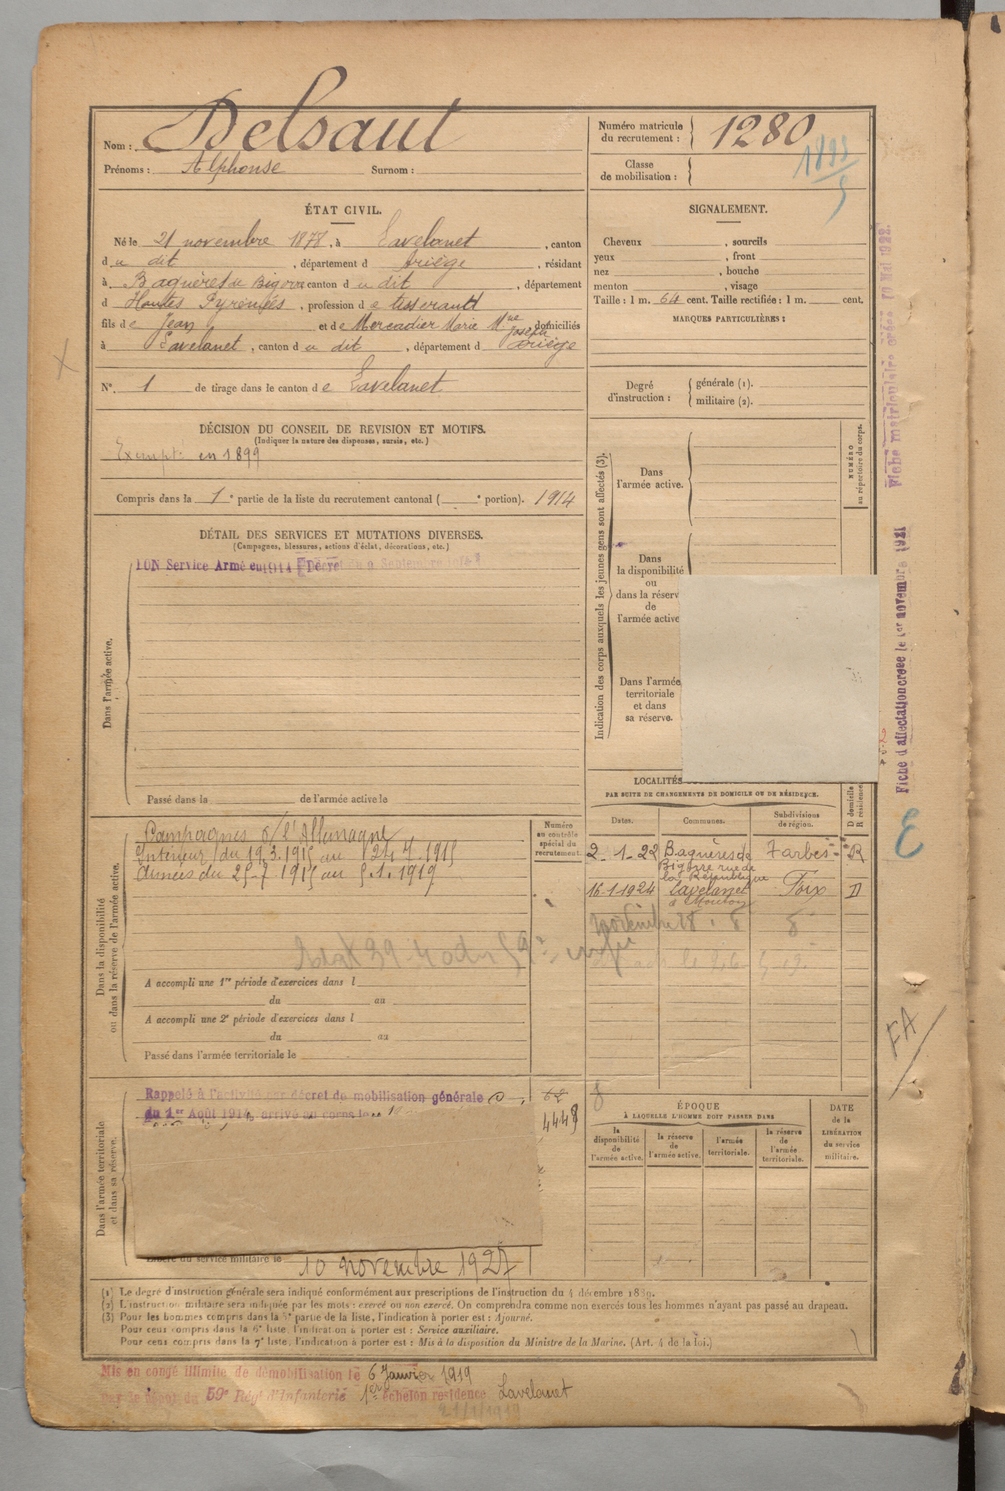 Nom : Delsaut
Prénoms : Alphonse Surnom :
Numéro matricule du recrutement : 1280
Classe de mobilisation :
ÉTAT CIVIL.
Né le 21 novembre 1878, à Lavelanet, canton
du dit, département d Ariège, résidant
à Bagnères de Bigorre canton du dit, département
d Hautes Pyrénées, profession de tisserand
fils de Jean et de Mercadier Marie Mne Joseph domiciliés
à Lavelanet, canton du dit, département d Ariège
N° 1 de tirage dans le canton de Lavelanet
DÉCISION DU CONSEIL DE REVISION ET MOTIFS.
(Indiquer la nature des dispenses, sursis, etc.)
Exempté en 1899
Compris dans la 1e partie de la liste du recrutement cantonal ( e portion). 1914
DÉTAIL DES SERVICES ET MUTATIONS DIVERSES.
(Campagnes, blessures, actions d'éclat, décorations, etc.)
Dans l'armée active.
ION Service Armé en 1914 [Décret du 9 Septembre 1914]
Passé dans la de l'armée active le
Dans la disponibilité ou dans la réserve de l'armée active.
Campagnes c/ l'Allemagne
Intérieur du 19.3.1915 au 24.7.1915
Armées du 25-7-1915 au 5.1.1919
A accompli une 1re période d'exercices dans l
du au
A accompli une 2e période d'exercices dans l
du au
Passé dans l'armée territoriale le
Numéro au contrôle spécial du recrutement.
Dans l'armée territoriale et dans sa réserve.
Rappelé à l'activité par décret de mobilisation générale
du 1er Août 1914, arrivé au corps le
4448
Libéré du service militaire le 10 novembre 1927
SIGNALEMENT.
Cheveux , sourcils
yeux , front
nez , bouche
menton , visage
Taille : 1 m. 64 cent. Taille rectifiée : 1 m. cent.
MARQUES PARTICULIÈRES :
Degré d'instruction : générale (1).
militaire (2).
Indication des corps auxquels les jeunes gens sont affectés (3).
NUMÉRO au répertoire du corps.
Dans l'armée active.
Dans la disponibilité ou dans la réserve de l'armée active
Dans l'armée territoriale et dans sa réserve.
LOCALITÉS
PAR SUITE DE CHANGEMENTS DE DOMICILE OU DE RÉSIDENCE.
Dates. Communes. Subdivisions de région. D domicile R résidence
2-1-22 Bagnères de Bigorre rue de la République Tarbes R
16-1-1924 Lavelanet Foix D
ÉPOQUE
À LAQUELLE L'HOMME DOIT PASSER DANS
la disponibilité de l'armée active.
la réserve de l'armée active.
l'armée territoriale.
la réserve de l'armée territoriale.
DATE de la LIBÉRATION du service militaire.
Fiche matriculaire créée 10 Mai 1922.
Fiche d'affectation créée le 1er novembre 1921
E
FA
(1) Le degré d'instruction générale sera indiqué conformément aux prescriptions de l'instruction du 4 décembre 1889.
(2) L'instruction militaire sera indiquée par les mots : exercé ou non exercé. On comprendra comme non exercés tous les hommes n'ayant pas passé au drapeau.
(3) Pour les hommes compris dans la 5e partie de la liste, l'indication à porter est : Ajourné.
Pour ceux compris dans la 6e liste, l'indication à porter est : Service auxiliaire.
Pour ceux compris dans la 7e liste, l'indication à porter est : Mis à la disposition du Ministre de la Marine. (Art. 4 de la loi.)
Mis en congé illimité de démobilisation le 6 Janvier 1919
Par le dépôt du 59e Régt d'Infanterie 1er échelon résidence Lavelanet